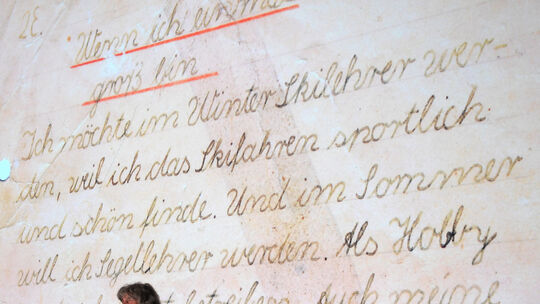 2E.
Wenn ich einmal
groß bin
Ich möchte im Winter Skilehrer wer-
den, weil ich das Skifahren sportlich
und schön finde. Und im Sommer
will ich Segellehrer werden. Als Hobby
betreiben. Auch meine